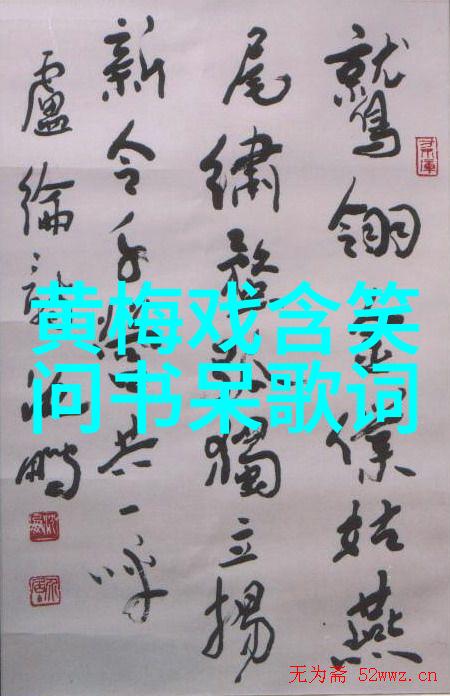 鷲翎僕姑燕
尾繡獨立揚
新令千共一呼
盧綸詩鵬
黄梅戏含笑
问书呆歌词
无为斋 52wwz.cn